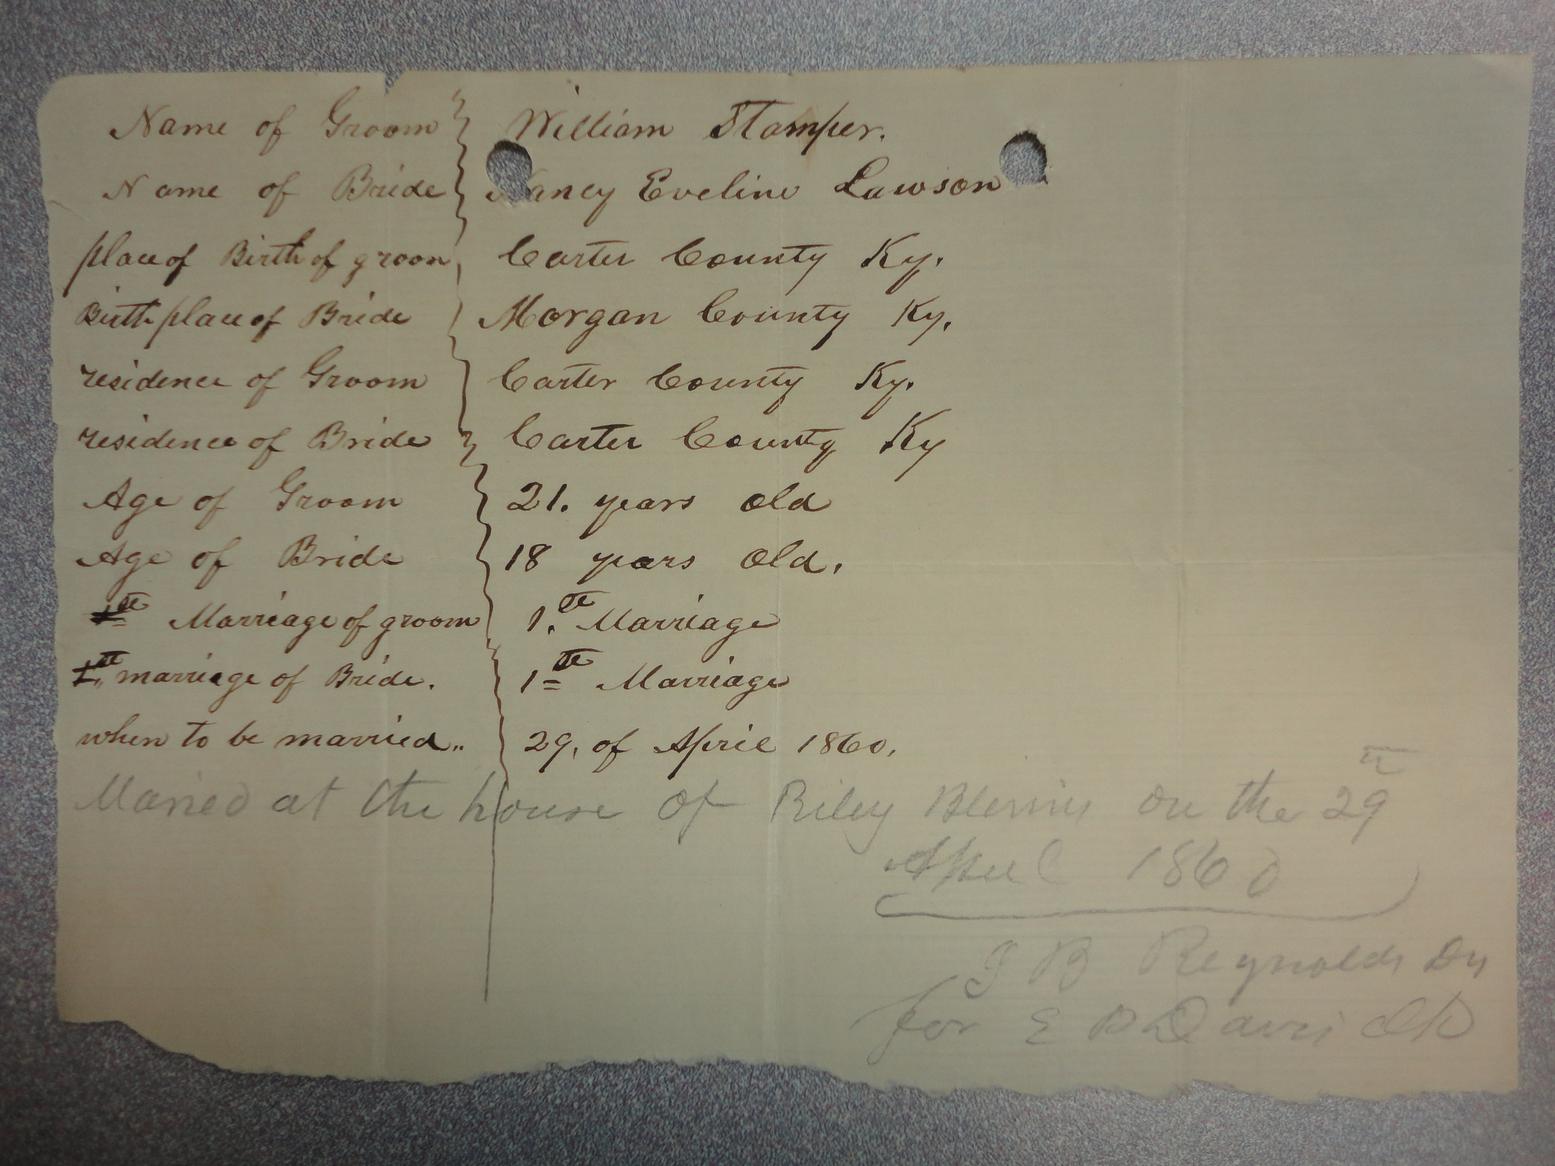 Name of Groom William Stamper.
Name of Bride Nancy Eveline Lawson
place of Birth of groom Carter County Ky.
Birth place of Bride Morgan County Ky.
residence of Groom Carter County Ky.
residence of Bride Carter County Ky
Age of Groom 21. years old
Age of Bride 18 years old.
Marriage of groom 1.th Marriage
marriage of Bride. 1th Marriage
when to be married.. 29, of April 1860.
Maried at the house of Riley on the 29th
April 1860
J B Reynolds Dy
for E D Davis Clk